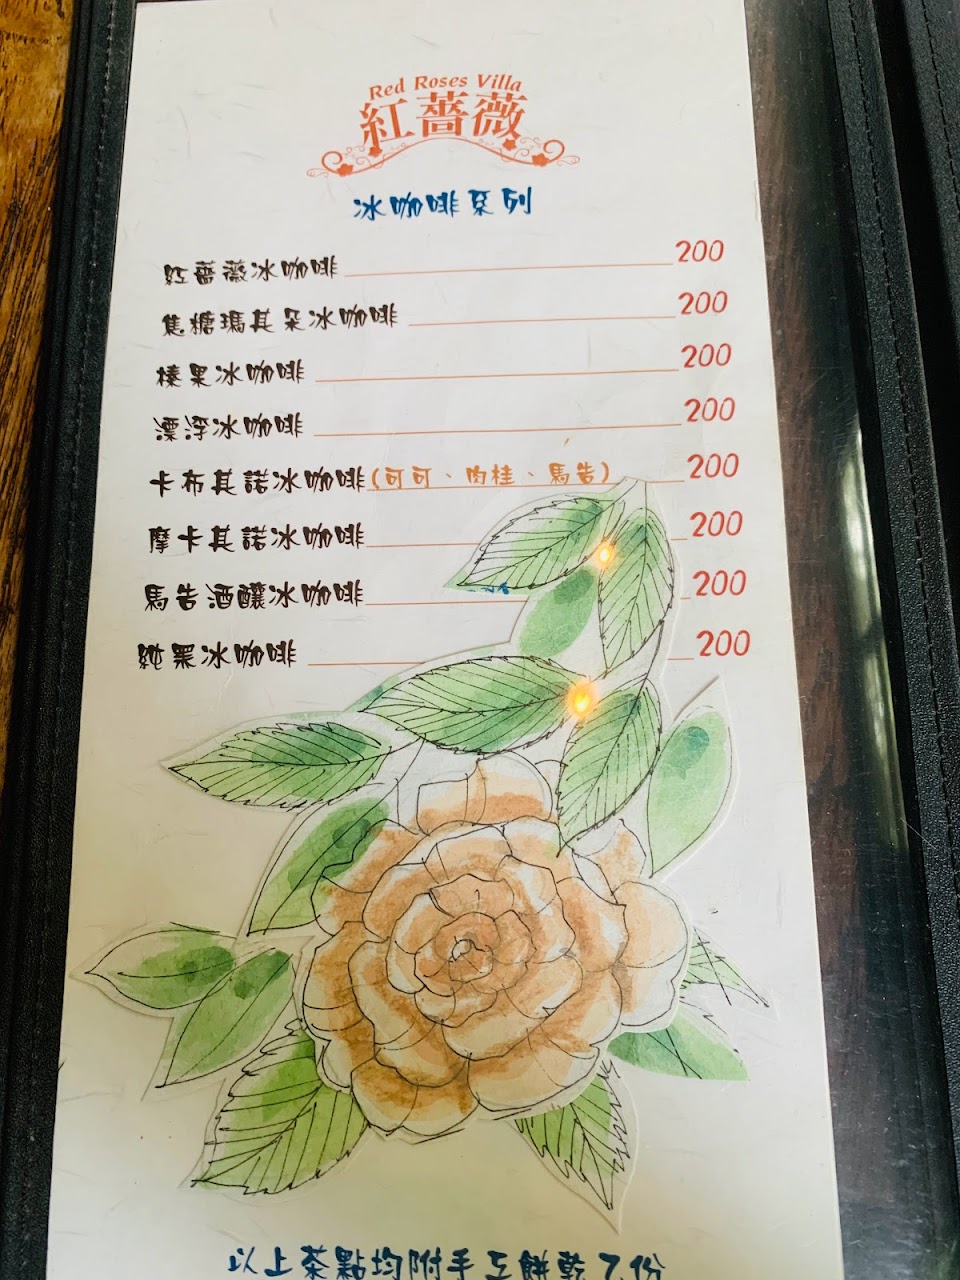 Red Roses Villa
紅薔薇
冰咖啡系列
紅薔薇冰咖啡 200
焦糖瑪其朵冰咖啡 200
榛果冰咖啡 200
漂浮冰咖啡 200
卡布其諾冰咖啡(可可、肉桂、馬告) 200
摩卡其諾冰咖啡 200
馬告酒釀冰咖啡 200
純黑冰咖啡 200
以上茶點均附手工餅乾乙份